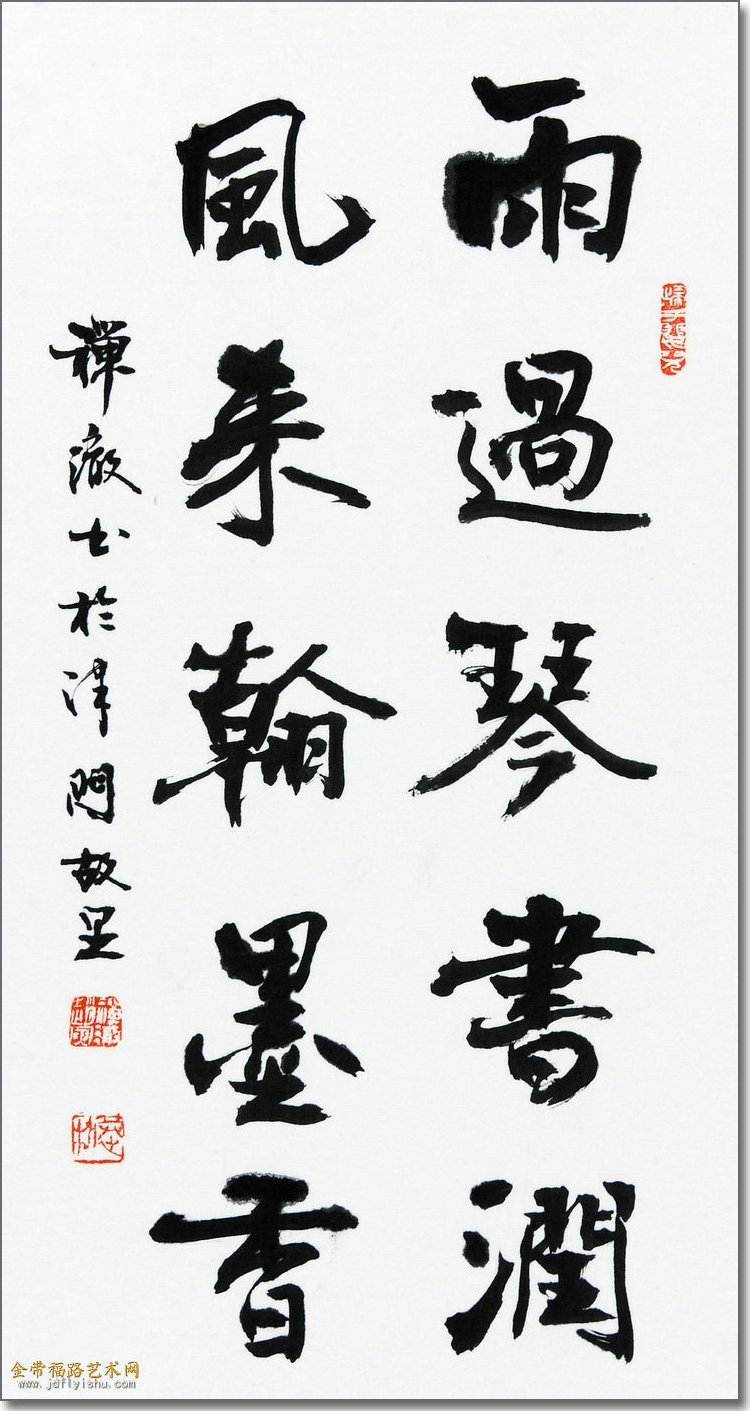 雨過琴書潤
風來翰墨香
禪澈書於津門故里
金带福路艺术网
www.jdflyishu.com